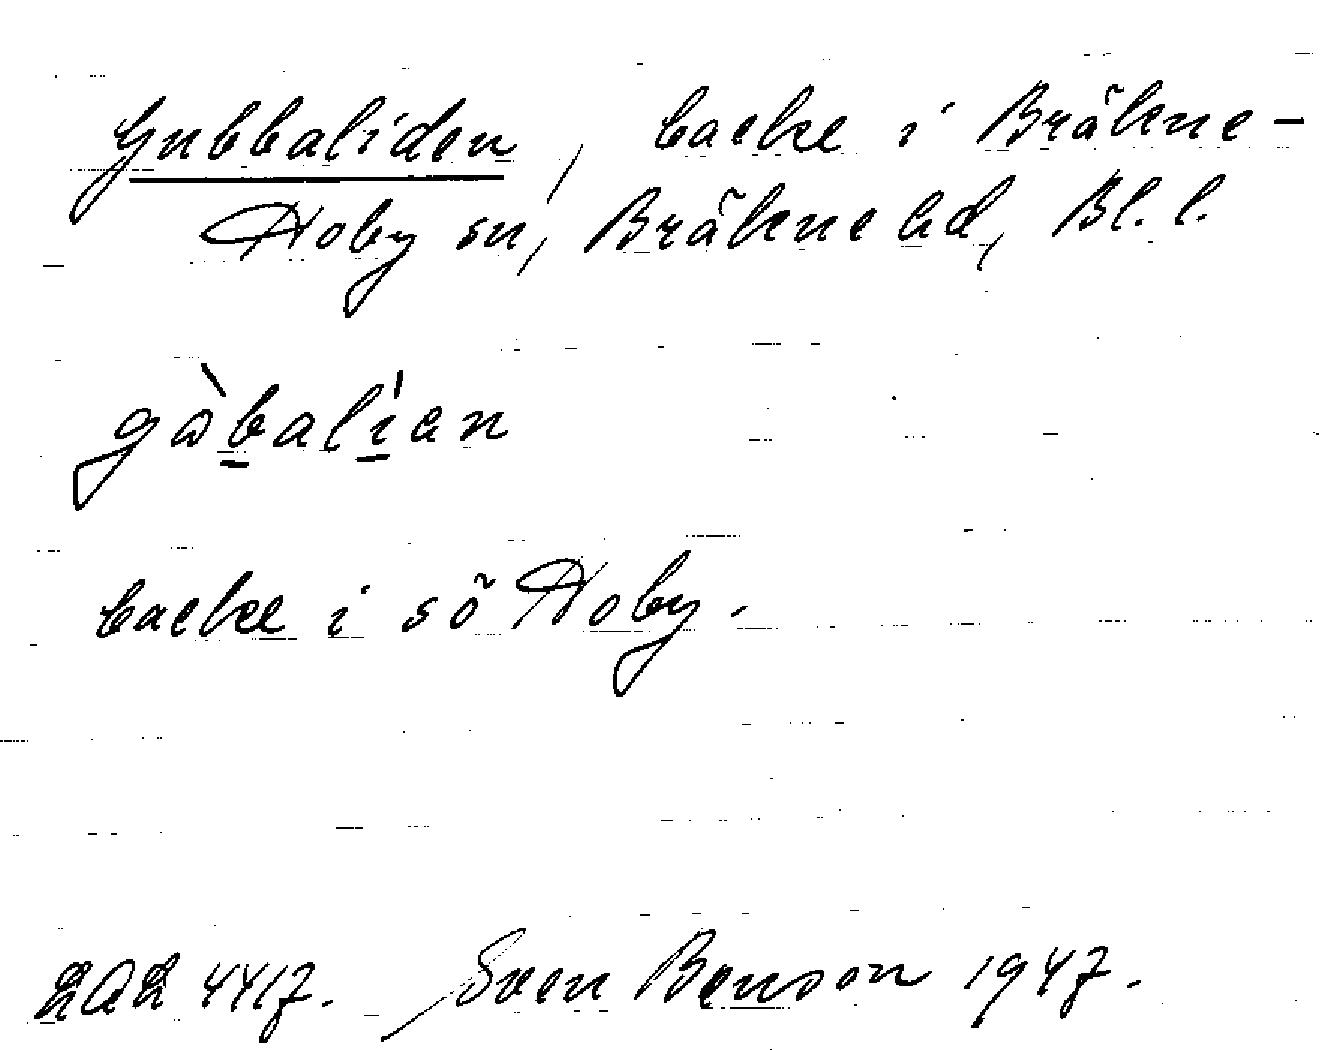 Gubbaliden, backe i Bräkne-
Hoby sn, Bräkne hd, Bl. l.
gòbalìan
backe i sö Hoby.
LAL 4417. Sven Benson 1947.